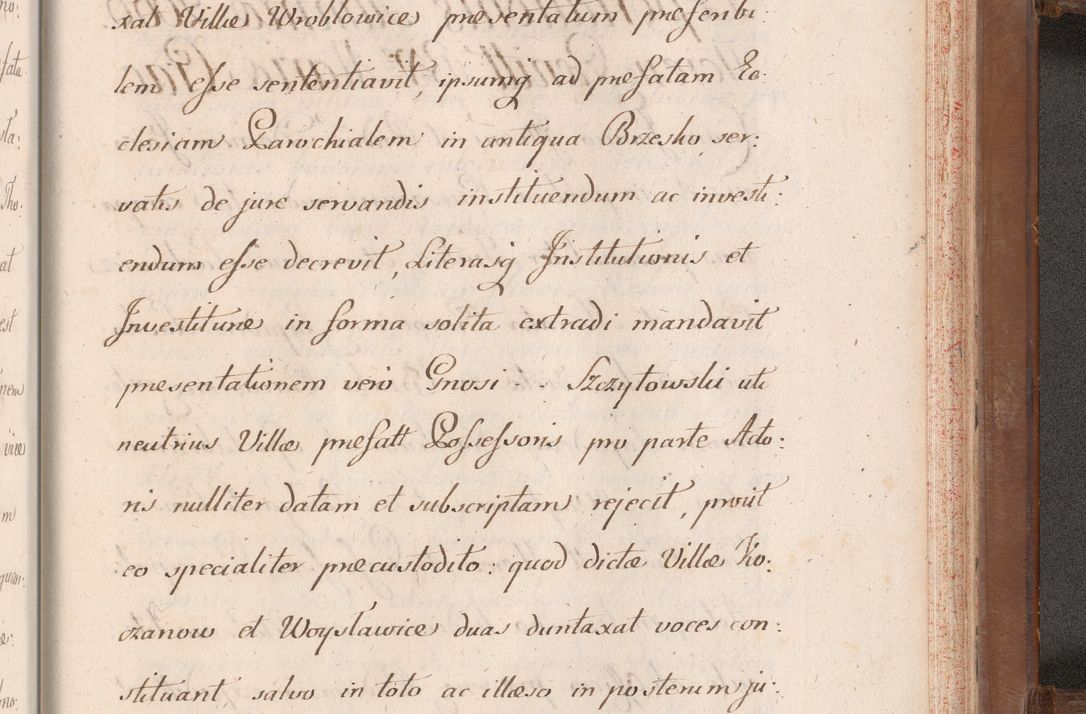 xat Villæ Wroblowice præsentatum præscribi:
lem esse sententiavit, ipsumq ad præfatam Ec:
clesiam Parochialem in antiqua Brzesko, ser:
vatis de jure servandis instituendum ac investi:
endum esse decrevit, Literasq Institutionis et
Investituræ in forma solita extradi mandavit
præsentationem vero Gnosi - - Szczytowski uti
neutrius Villæ præfatt Possessoris pro parte Acto:
ris nulliter datam et subscriptam rejecit, prout
eo specialiter præcustodito: quod dictæ Villæ Ko:
czanow et Woysławice duas duntaxat voces con:
stituant, salvo in toto ac illæso in posterum ju: